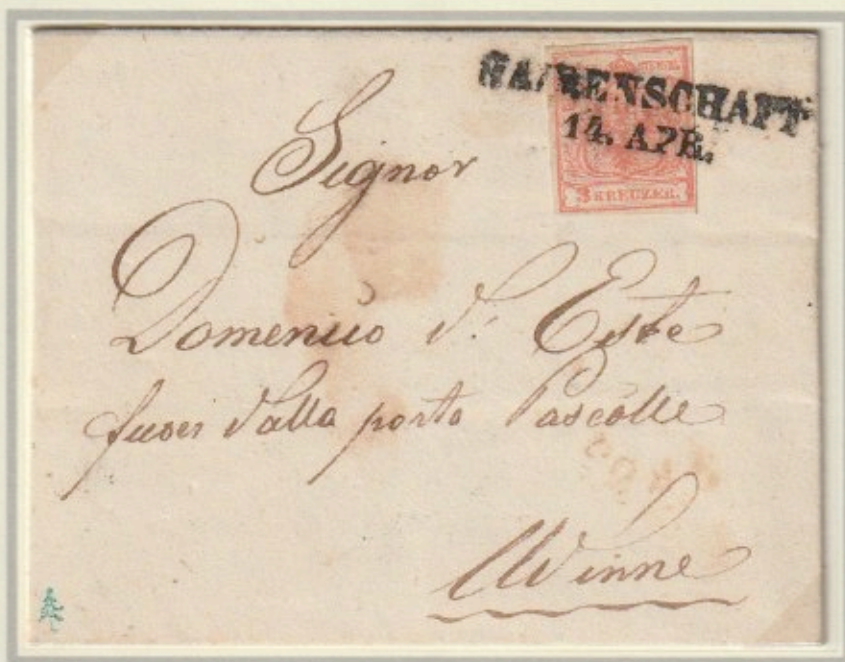 HAIDENSCHAFT
14. APR.
3 KREUZER.
Signor
Domenico d'Este
fuori dalla porta Pascolle
Udinne